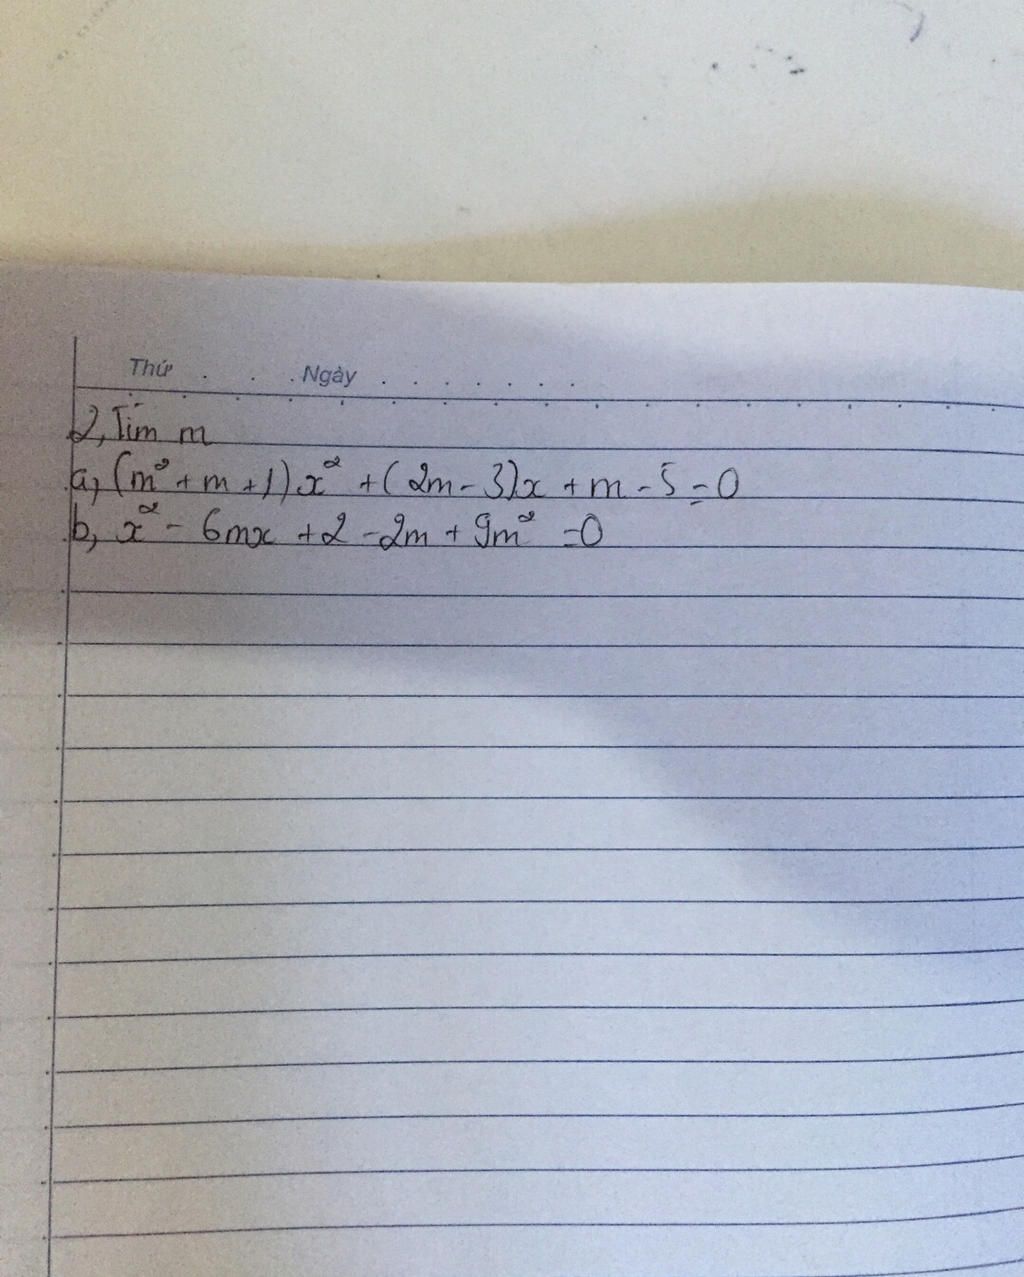 Thứ . . . Ngày . . . . . . .
2, Tìm m
a, (m² + m + 1)x² + (2m - 3)x + m - 5 = 0
b, x² - 6mx + 2 - 2m + 9m² = 0